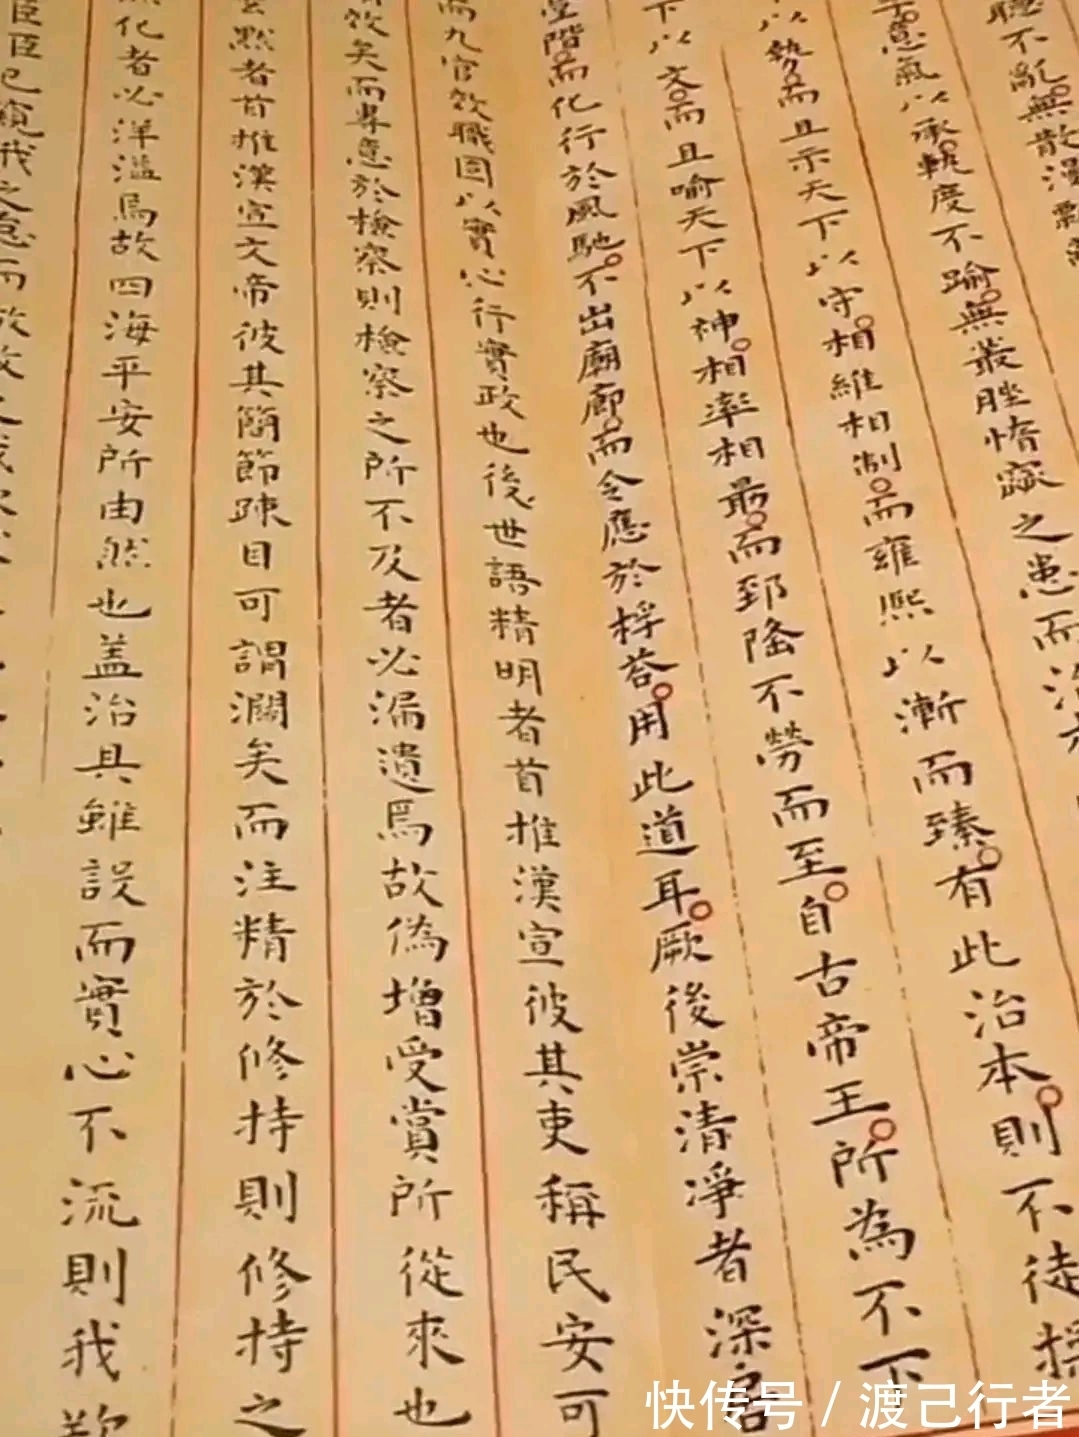 聽不亂無散漫
意氣以承執度不踰無叢脞惰窳之患而治
以勢而且示天下以守相維相制而雍熙以漸而臻有此治本則不徒
下以文而且喻天下以神相率相勗而郅隆不勞而至自古帝王所為不下
堂階而化行於風馳不出廟廊而令應於桴答用此道耳厥後崇清淨者深居
而九官效職固以實心行實政也後世語精明者首推漢宣彼其吏稱民安可
效矣而專意於檢察則檢察之所不及者必漏遺焉故偽增受賞所從來也
玄默者首推漢文帝彼其簡節疎目可謂濶矣而注精於修持則修持之
化者必洋溢焉故四海平安所由然也蓋治具雖設而實心不流則我
臣臣已窺我之意而
快传号 / 渡己行者